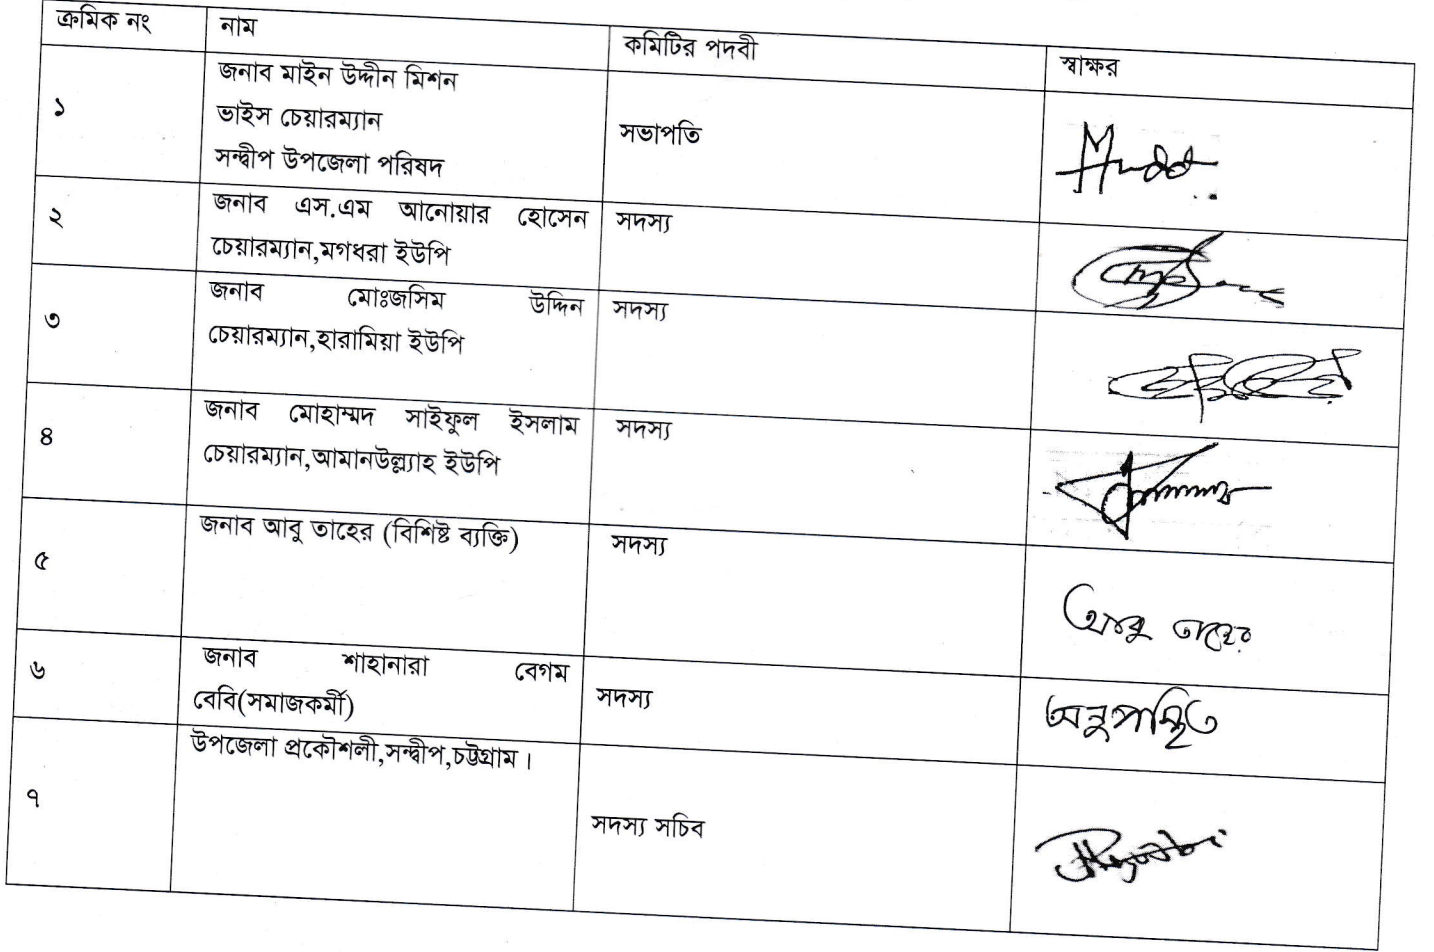 ক্রমিক নং নাম কমিটির পদবী স্বাক্ষর
১ জনাব মাইন উদ্দীন মিশন
ভাইস চেয়ারম্যান সভাপতি
সন্দ্বীপ উপজেলা পরিষদ
২ জনাব এস.এম আনোয়ার হোসেন সদস্য
চেয়ারম্যান,মগধরা ইউপি
৩ জনাব মোঃজসিম উদ্দিন সদস্য
চেয়ারম্যান,হারামিয়া ইউপি
৪ জনাব মোহাম্মদ সাইফুল ইসলাম সদস্য
চেয়ারম্যান,আমানউল্ল্যাহ ইউপি
৫ জনাব আবু তাহের (বিশিষ্ট ব্যক্তি) সদস্য আবু তাহের
৬ জনাব শাহানারা বেগম
বেবি(সমাজকর্মী) সদস্য অনুপস্থিত
৭ উপজেলা প্রকৌশলী,সন্দ্বীপ,চট্টগ্রাম।
সদস্য সচিব